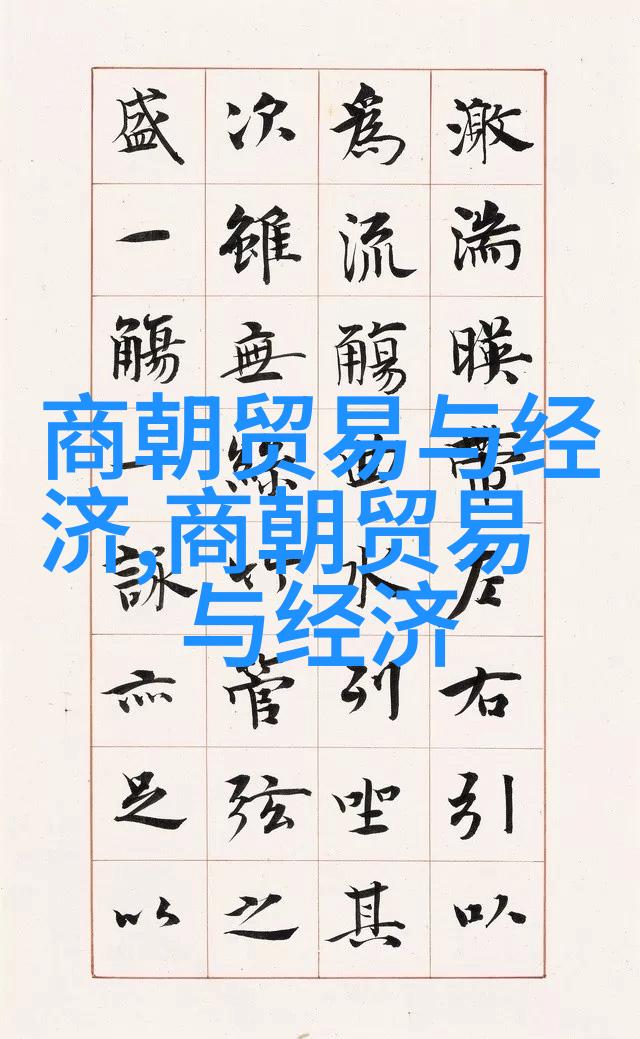 激湍暎帶左右引以
爲流觴曲水列坐其
次雖無絲竹管弦之
盛一觴一詠亦足以
商朝贸易与经
济,商朝贸易
与经济